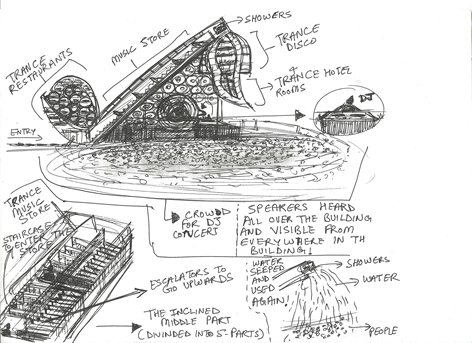 SHOWERS
MUSIC STORE
TRANCE
DISCO
TRANCE
RESTAURANTS
&
TRANCE HOTEL
ROOMS
DJ
ENTRY
CROWD
FOR DJ
CONCERT
SPEAKERS HEARD
ALL OVER THE BUILDING
AND VISIBLE FROM
EVERYWHERE IN TH
BUILDING!
TRANCE
MUSIC
STORE
STAIRCASE
TO
ENTER THE
STORE
ESCALATORS TO
GO UPWARDS
THE INCLINED
MIDDLE PART
(DIVINDED INTO 5-PARTS)
WATER
SEEPED
AND
USED
AGAIN!
SHOWERS
WATER
PEOPLE